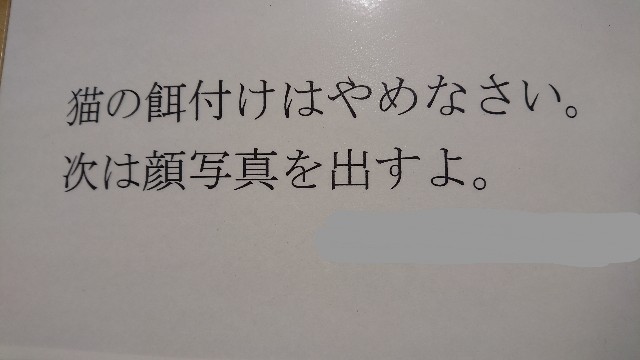 猫の餌付けはやめなさい。
次は顔写真を出すよ。